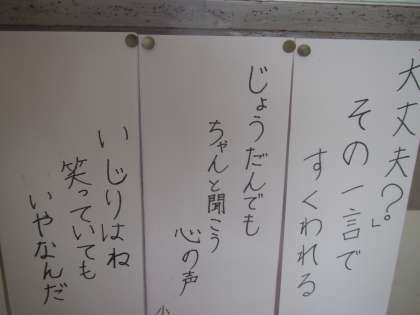 大丈夫?。」
その一言で
すくわれる
じょうだんでも
ちゃんと聞こう
心の声
いじりはね
笑っていても
いやなんだ